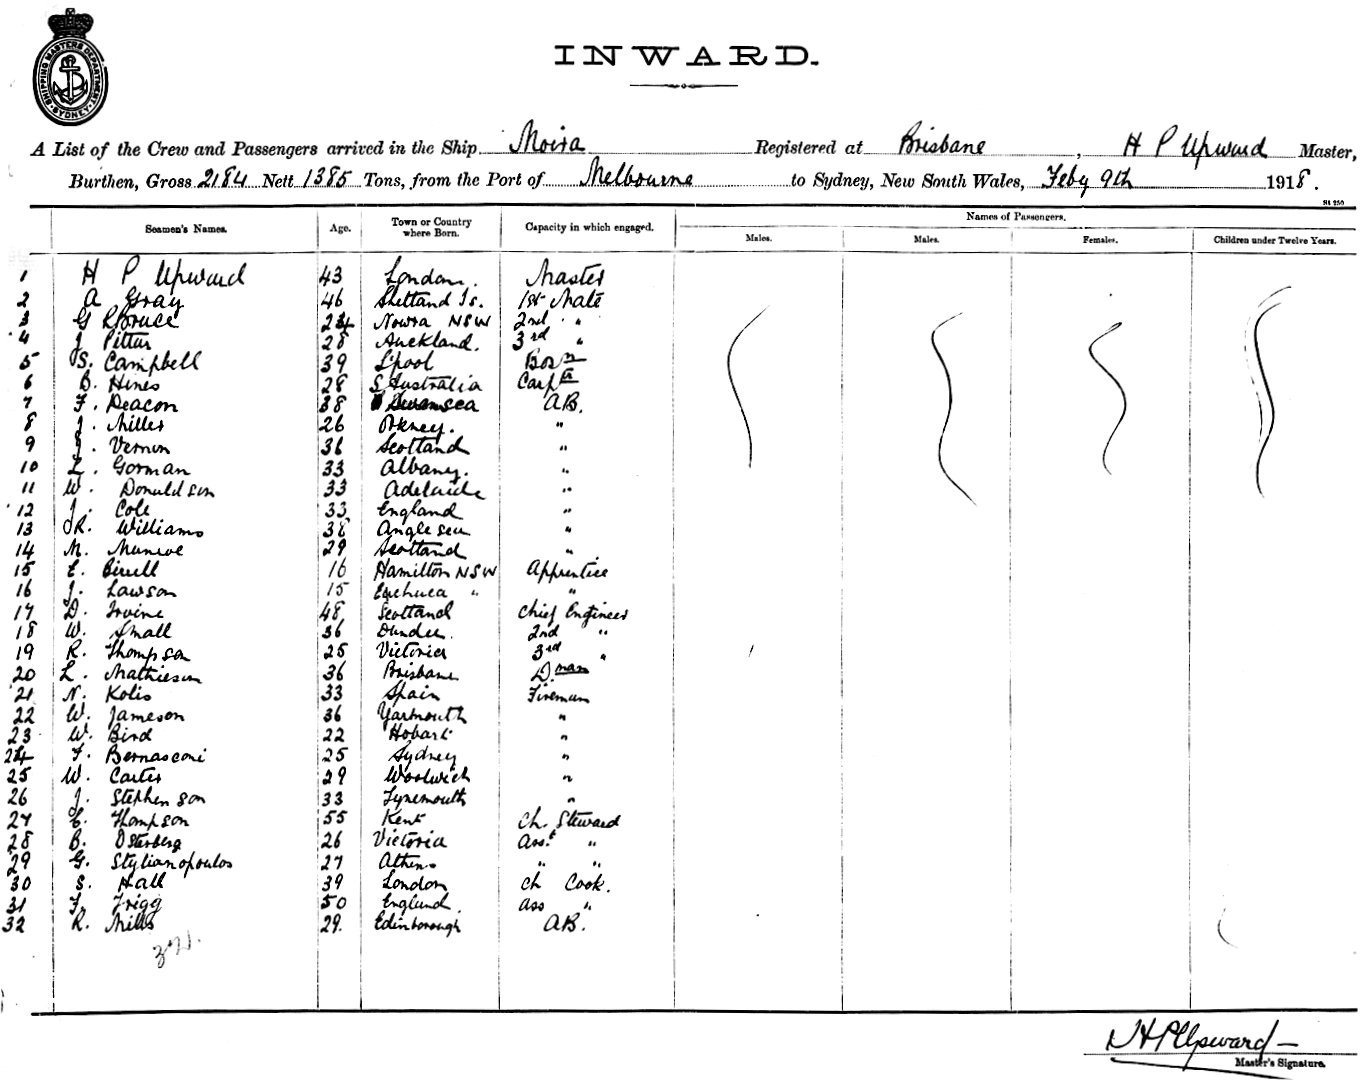 SHIPPING MASTERS DEPARTMENT · SYDNEY ·
INWARD.
A List of the Crew and Passengers arrived in the Ship Moira Registered at Brisbane, H P Upward Master,
Burthen, Gross 2184 Nett 1385 Tons, from the Port of Melbourne to Sydney, New South Wales, Feby 9th 1918.
St 250
Seamen's Names. Age. Town or Country where Born. Capacity in which engaged. Names of Passengers.
Males. Males. Females. Children under Twelve Years.
1 H P Upward 43 London. Master
2 A Gray 46 Shetland Is. 1st Mate
3 G R Bruce 24 Nowra NSW 2nd "
4 J Pittar 28 Auckland. 3rd "
5 S. Campbell 39 L'pool Bosn
6 B. Hines 28 S. Australia Carptr
7 F. Deacon 38 Swansea AB.
8 J. Miller 26 Orkney. "
9 J. Vernon 36 Scotland "
10 L. Gorman 33 Albany. "
11 W. Donaldson 33 Adelaide "
12 J. Cole 33 England "
13 R. Williams 38 Anglesea "
14 M. Munroe 29 Scotland "
15 E. 16 Hamilton NSW Apprentice
16 J. Lawson 15 Echuca " "
17 D. Irvine 48 Scotland Chief Engineer
18 W. Small 36 Dundee. 2nd "
19 R. Thompson 25 Victoria 3rd "
20 L. Mathieson 36 Brisbane D.man
21 N. Kolis 33 Spain Fireman
22 W. Jameson 36 Yarmouth "
23 W. Bird 22 Hobart "
24 F. Bernasconi 25 Sydney "
25 W. Carter 29 Woolwich "
26 J. Stephenson 33 Tynemouth "
27 C. Thompson 55 Kent Ch. Steward
28 B. Osterberg 26 Victoria Asst "
29 G. Stylianopoulos 27 Athens " "
30 S. Hall 39 London Ch Cook.
31 F. Frigg 50 England. Ass "
32 R. Mills 29. Edinborough AB.
H P Upward
Master's Signature.